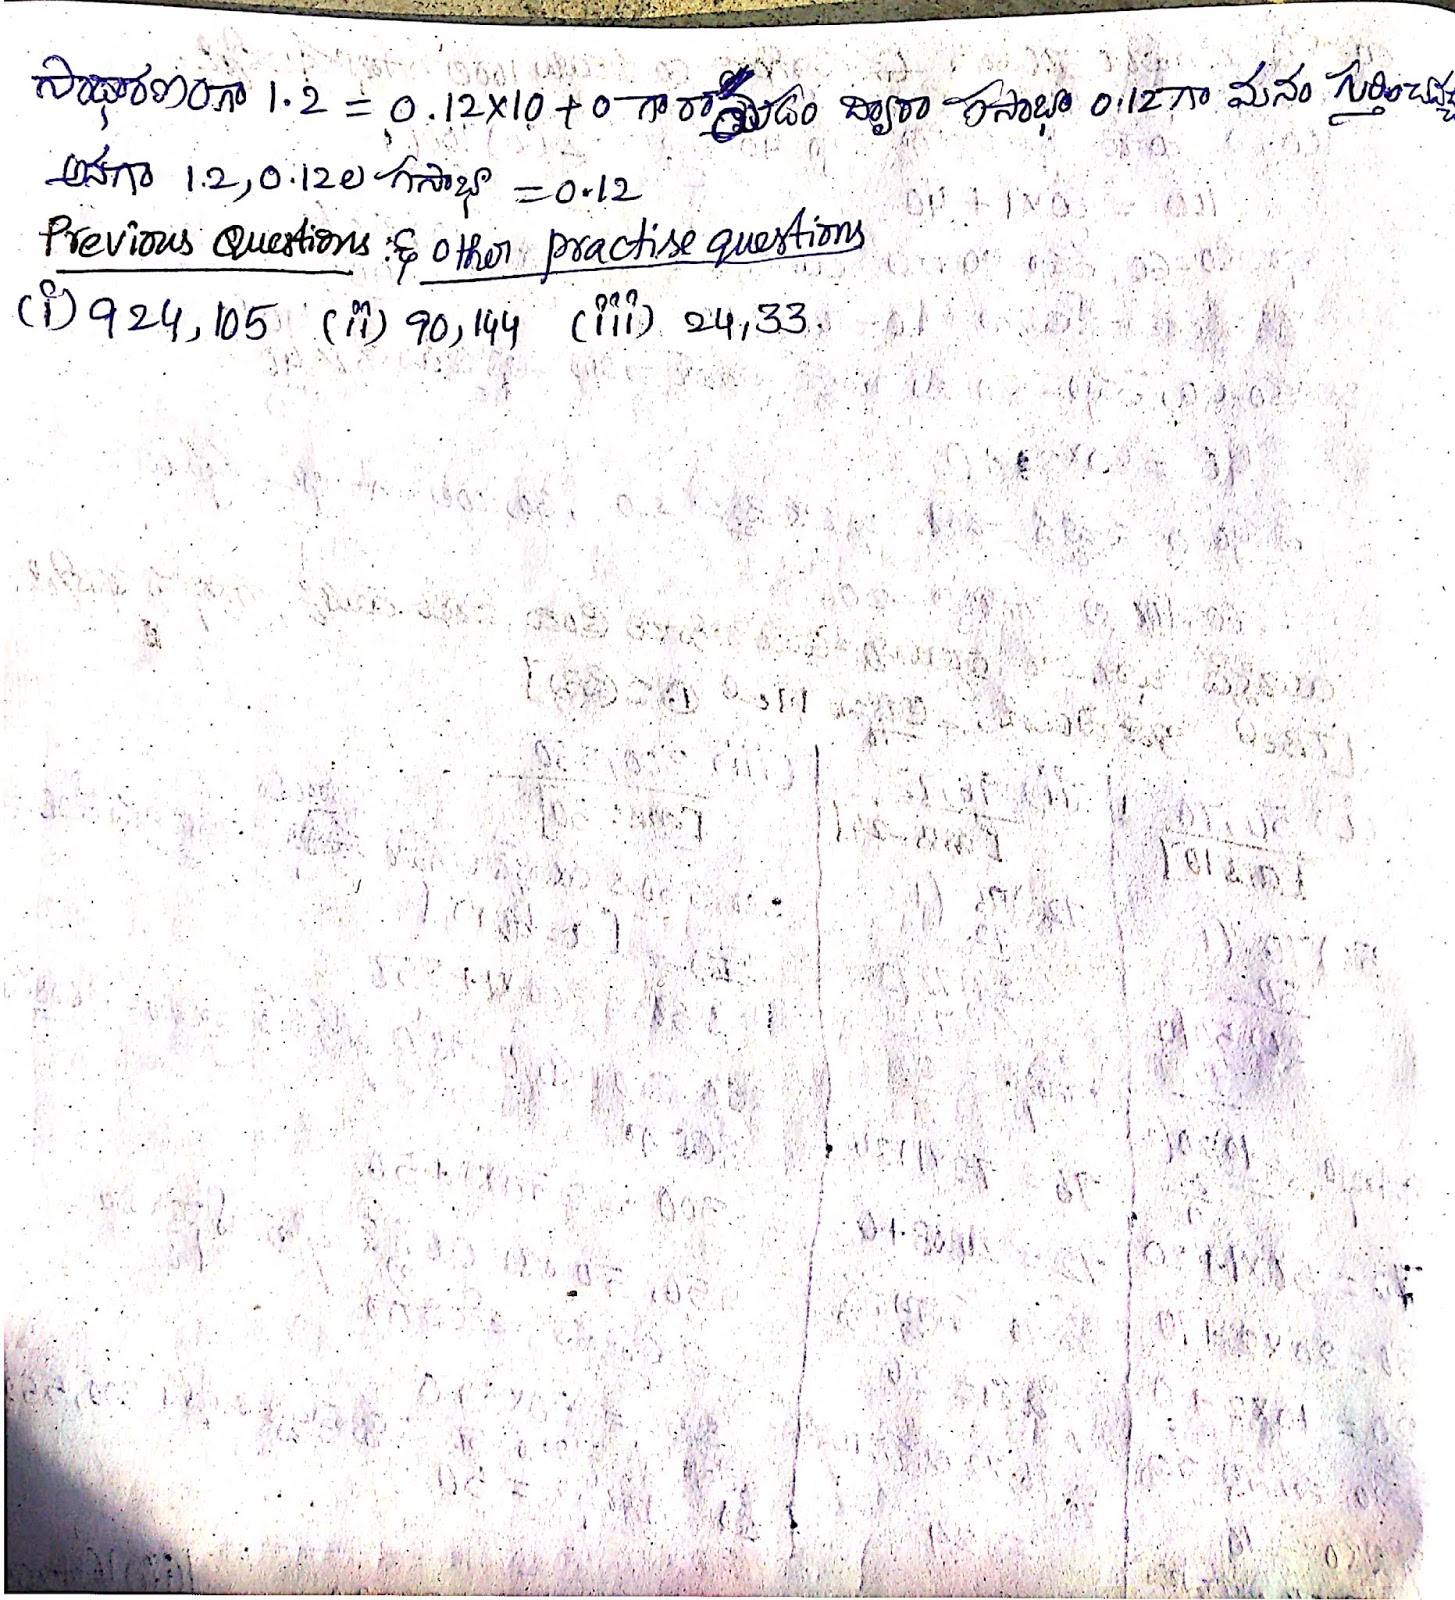 సాధారణంగా 1.2 = 0.12×10 + 0 గా రాయడం ద్వారా గసాభా 0.12గా మనం
అనగా 1.2, 0.12ల గసాభా = 0.12
Previous Questions & other practise questions
(i) 924, 105 (ii) 90, 144 (iii) 24, 33.